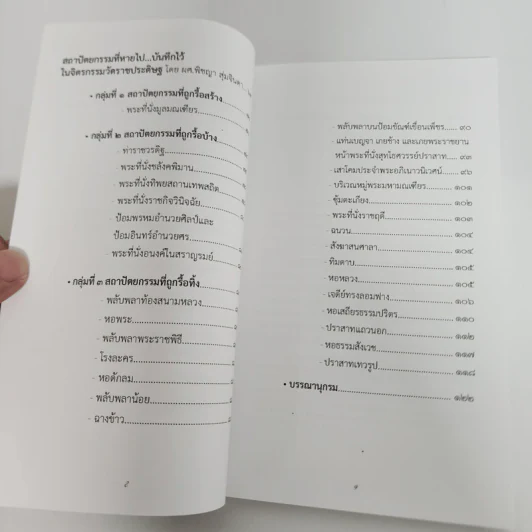 สถาปัตยกรรมที่หายไป...บันทึกไว้
ในจิตรกรรมวัดราชประดิษฐ โดย ผศ.พิชญา สุ่มจินดา
• กลุ่มที่ ๑ สถาปัตยกรรมที่ถูกรื้อสร้าง
- พระที่นั่งมูลมณเฑียร
• กลุ่มที่ ๒ สถาปัตยกรรมที่ถูกรื้อบ้าง
- ท่าราชวรดิฐ
- พระที่นั่งชลังคพิมาน
- พระที่นั่งทิพยสถานเทพสถิต
- พระที่นั่งราชกิจวินิจฉัย
- ป้อมพรหมอำนวยศิลป์และ
ป้อมอินทร์อำนวยศร
- พระที่นั่งอนงค์ในสราญรมย์
• กลุ่มที่ ๓ สถาปัตยกรรมที่ถูกรื้อทิ้ง
- พลับพลาท้องสนามหลวง
- หอพระ
- พลับพลาพระราชพิธี
- โรงละคร
- หอดักลม
- พลับพลาน้อย
- ฉางข้าว
- พลับพลาบนป้อมขัณฑ์เขื่อนเพ็ชร ๙๐
- แท่นเบญจา เกยช้าง และเกยพระราชยาน
หน้าพระที่นั่งสุทไธศวรรย์ปราสาท ๙๓
- เสาโคมประจำพระอภิเนาวนิเวศน์ ๙๖
- บริเวณหมู่พระมหามณเฑียร ๑๐๑
- ซุ้มตะเกียง ๑๐๒
- พระที่นั่งราชฤดี ๑๐๓
- ฉนวน ๑๐๔
- สังฆาสนศาลา ๑๐๔
- ทิมดาบ ๑๐๕
- หอหลวง ๑๐๕
- เจดีย์ทรงลอมฟาง ๑๐๖
- หอเสถียรธรรมปริตร ๑๑๐
- ปราสาทแถวนอก ๑๑๒
- หอธรรมสังเวช ๑๑๗
- ปราสาทเทวรูป ๑๑๘
• บรรณานุกรม ๑๒๒